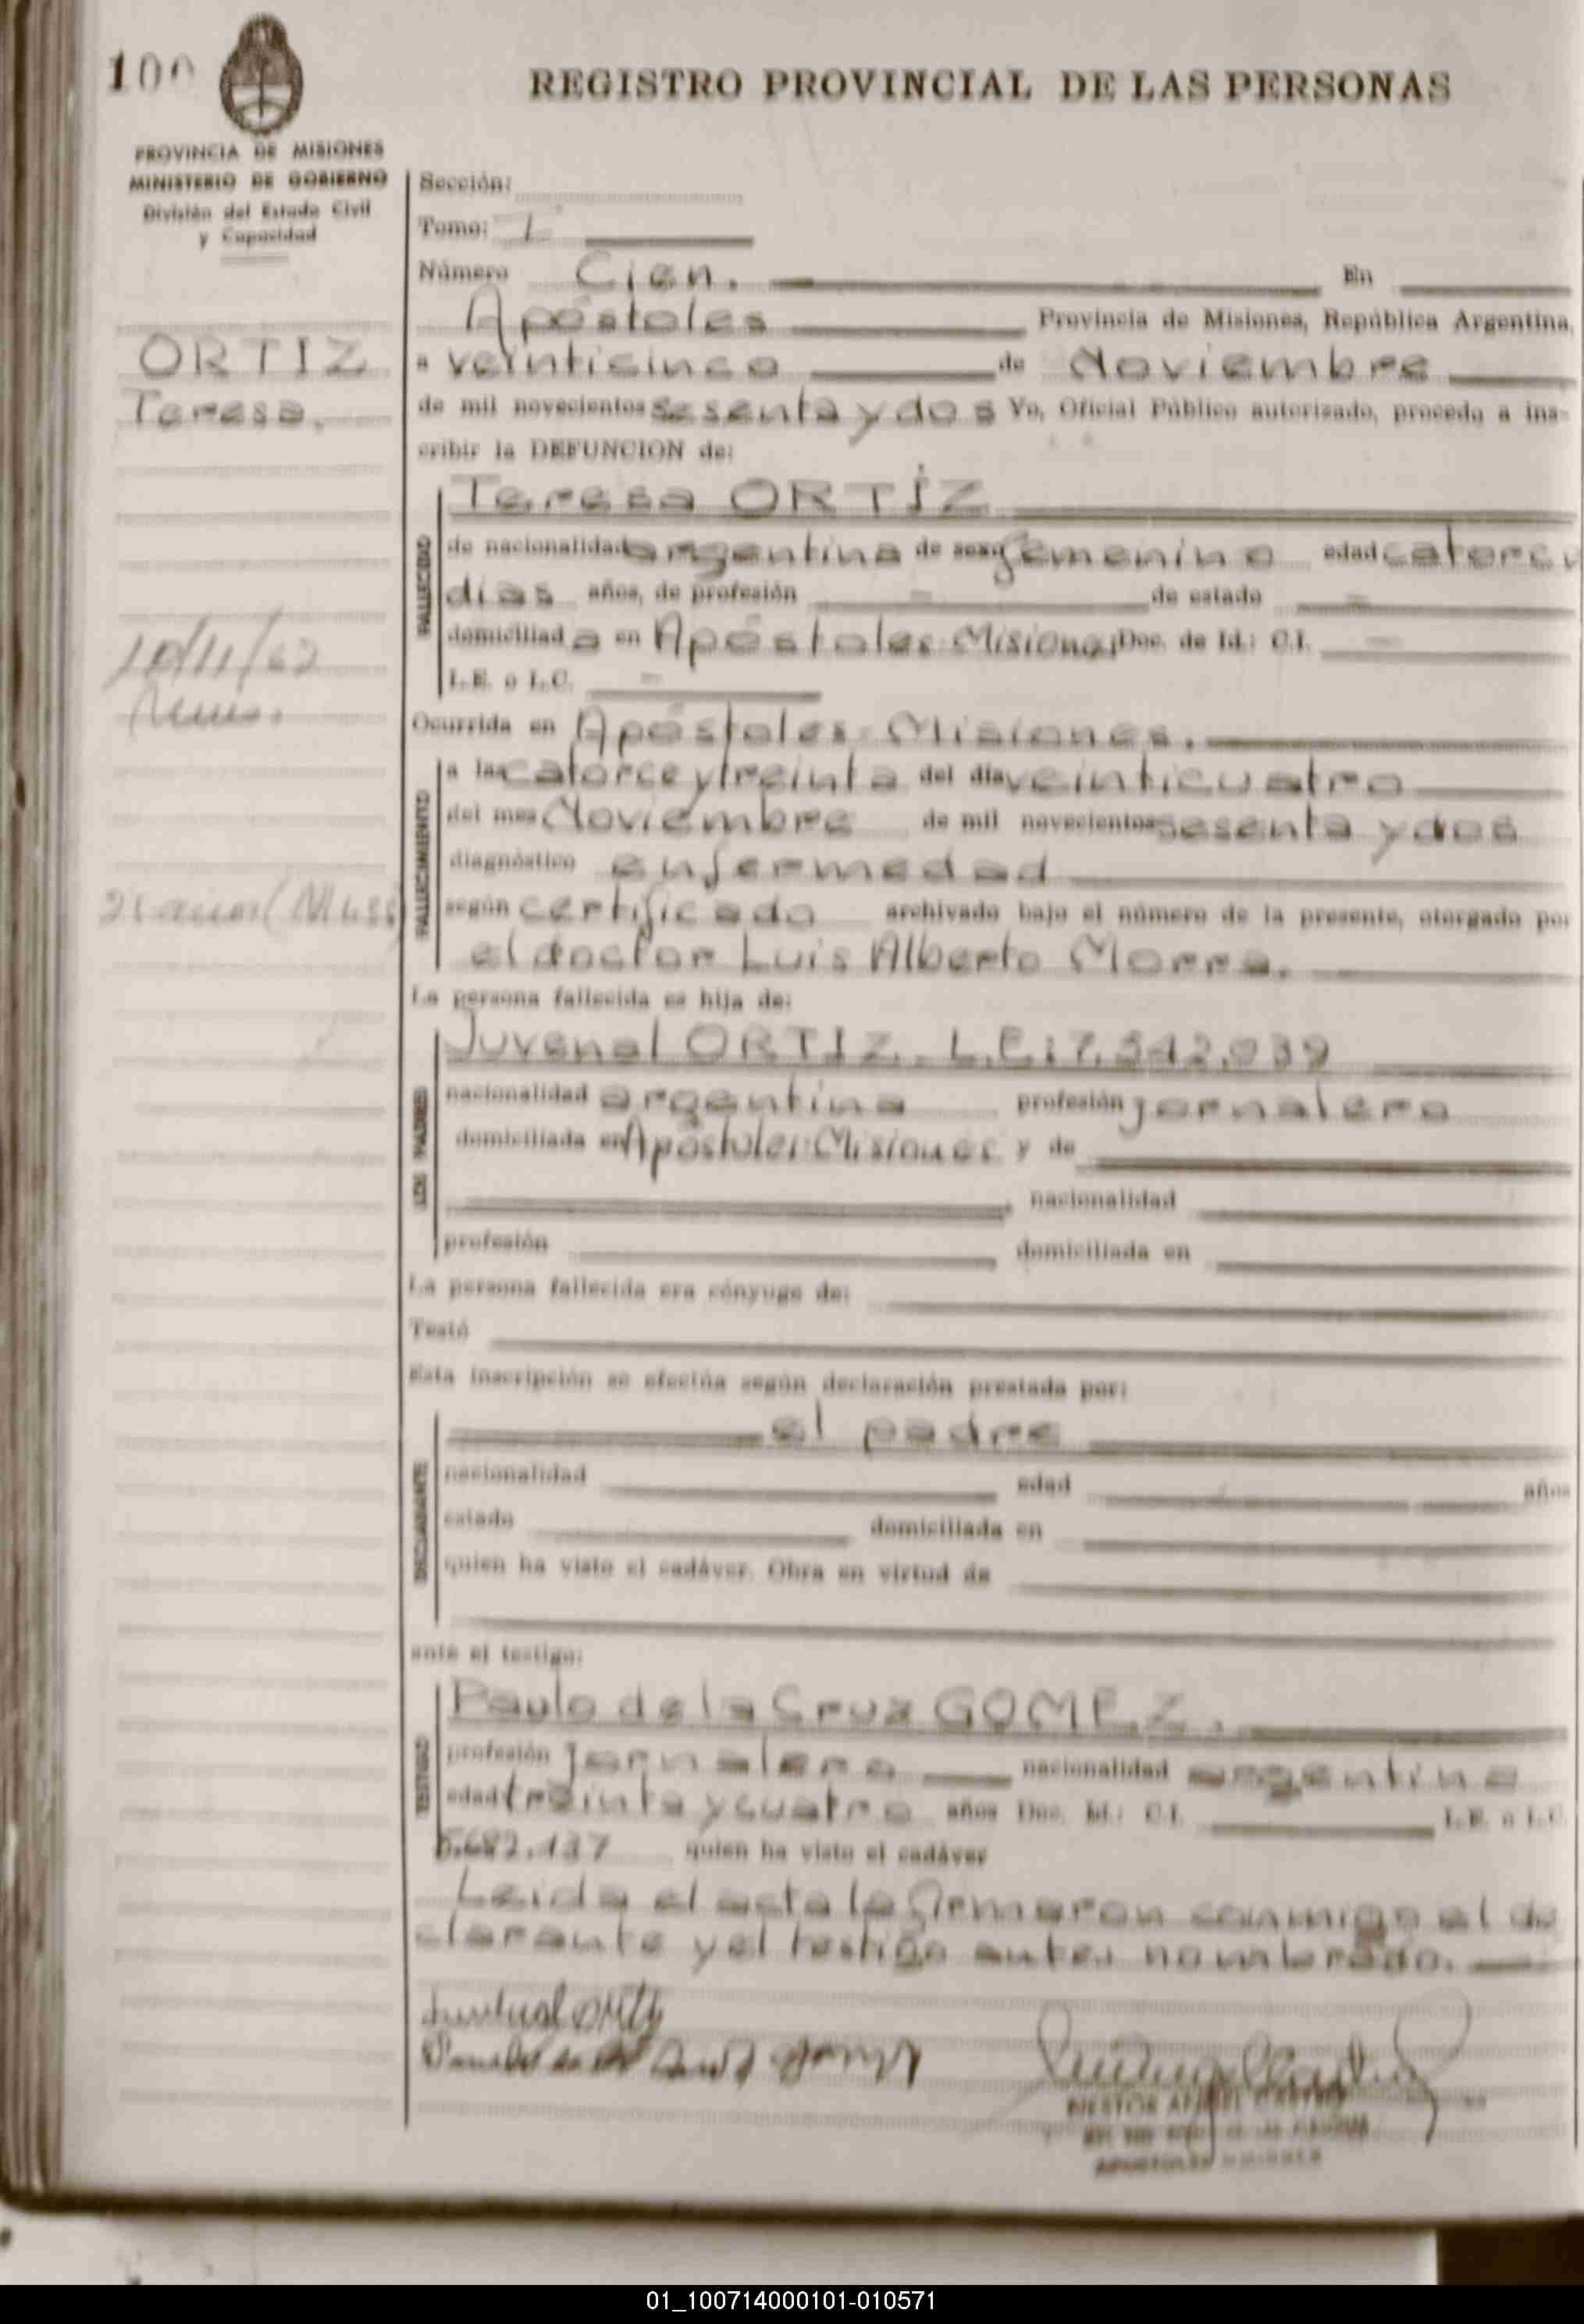 100
REGISTRO PROVINCIAL DE LAS PERSONAS
PROVINCIA DE MISIONES
MINISTERIO DE GOBIERNO
División del Estado Civil
y Capacidad
Sección:
Tomo: I
Número Cien. En
Apóstoles Provincia de Misiones, República Argentina,
ORTIZ
Teresa.
a veinticinco de Noviembre
de mil novecientos sesenta y dos Yo, Oficial Público autorizado, procedo a ins-
cribir la DEFUNCION de:
FALLECIDO
Teresa ORTÍZ
de nacionalidad argentina de sexo femenino edad catorce
días años, de profesión - de estado -
domiciliada en Apóstoles-Misiones Doc. de Id.: C.I. -
L.E. o L.C. -
10/11/62
Ocurrida en Apóstoles-Misiones.
FALLECIMIENTO
a las catorce y treinta del día veinticuatro
del mes Noviembre de mil novecientos sesenta y dos
diagnóstico enfermedad
según certificado archivado bajo el número de la presente, otorgado por
el doctor Luis Alberto Morra.
La persona fallecida es hija de:
LOS PADRES
Juvenal ORTIZ. L.E: 7.542.939
nacionalidad argentina profesión jornalero
domiciliada en Apóstoles-Misiones y de
nacionalidad
profesión domiciliada en
La persona fallecida era cónyuge de:
Testó
Esta inscripción se efectúa según declaración prestada por:
DECLARANTE
el padre
nacionalidad edad años
estado domiciliada en
quien ha visto el cadáver. Obra en virtud de
ante el testigo:
TESTIGO
Paulo de la Cruz GOMEZ.
profesión jornalero nacionalidad argentina
edad treinta y cuatro años Doc. Id.: C.I. L.E. o L.C.
5.682.137 quien ha visto el cadáver
Leida el acta la firmaron conmigo el de
clarante y el testigo antes nombrado.
Juvenal Ortiz
NESTOR ANGEL CASTRO
APOSTOLES MISIONES
01_100714000101-010571